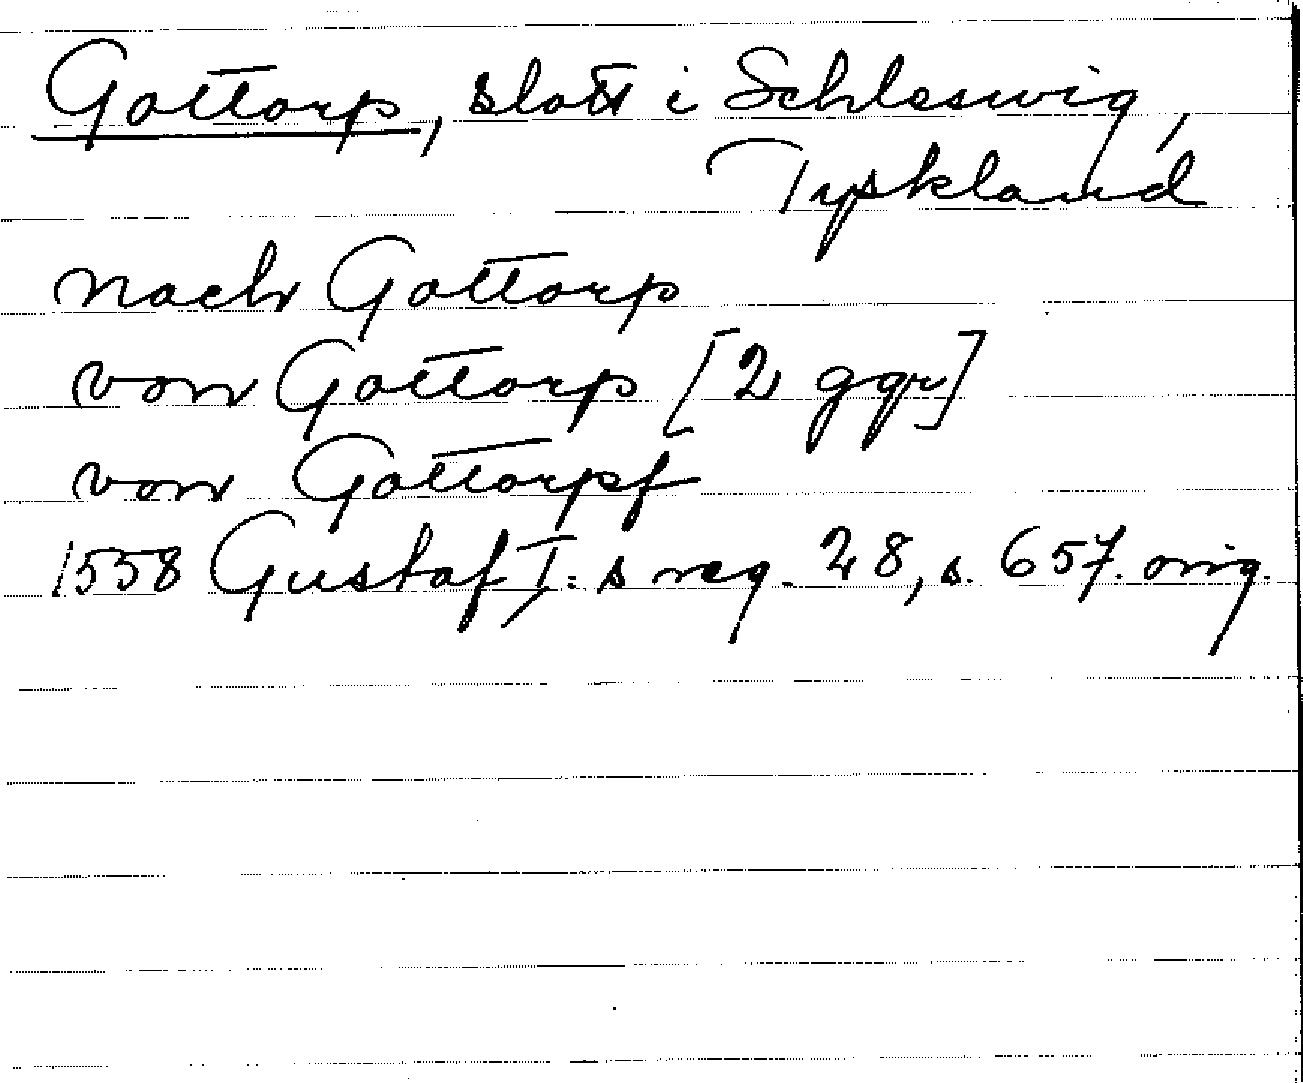 Gottorp, slott i Schleswig,
Tyskland
nach Gottorp
von Gottorp [2 ggr]
von Gottorpf
1558 Gustaf I:s reg. 28, s. 657. orig.